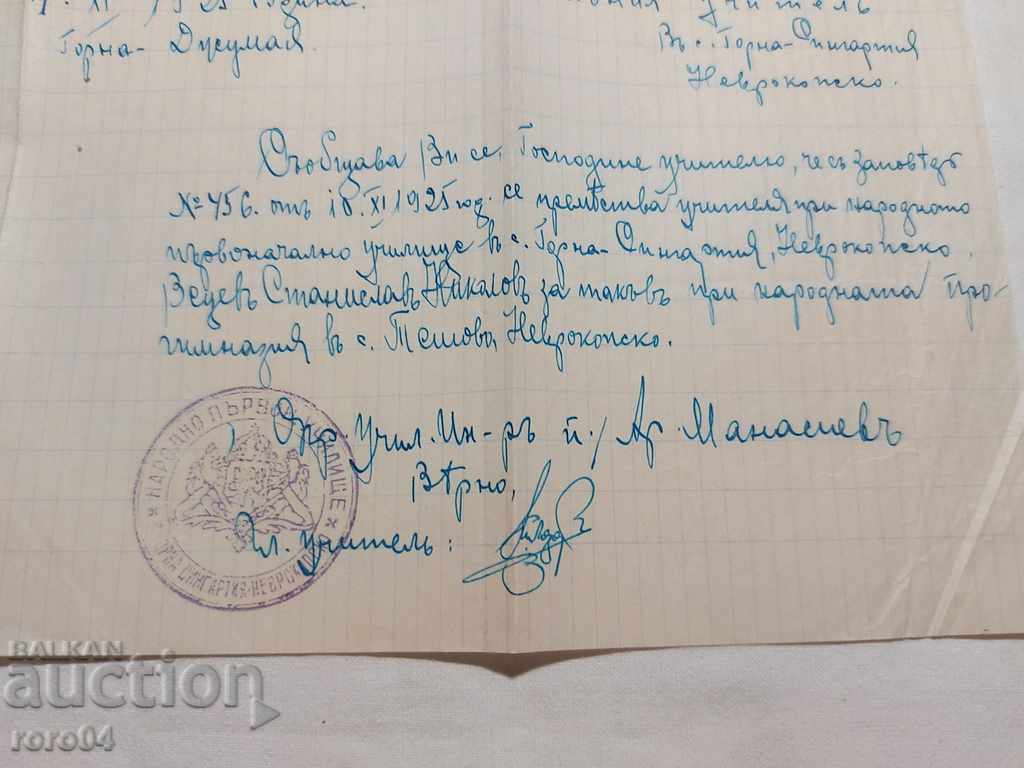 XI 1925 година.
Учитель
Горна-Джумая
Въ с. Горна-Сингартия
Неврокопско.
Съобщава Ви се, Господине учителю, че съ заповѣдь
№ 456. отъ 10. XI 1925 год. се премѣства учителя при народното
първоначално училище въ с. Горна-Сингартия, Неврокопско,
Вецевъ Станиславъ Николовъ за такъвъ при народната Про-
гимназия въ с. Тешово, Неврокопско.
Учил. Ин-ръ п./ Ар. Манасиевъ
Вѣрно,
Гл. учитель:
НАРОДНО ПЪРВОН УЧИЛИЩЕ
СИНГАРТИЯ-НЕВРОКОП
BALKAN
auction
roro04